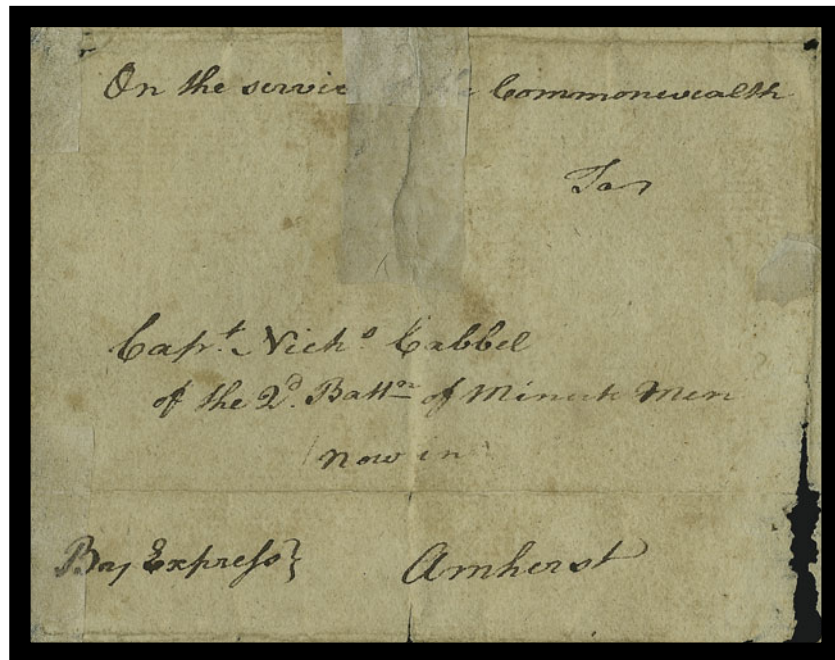 On the servic Commonwealth
To
Capt. Nichs Cabbel
of the 2d. Batton of Minute Men
now in
By Express} Amherst